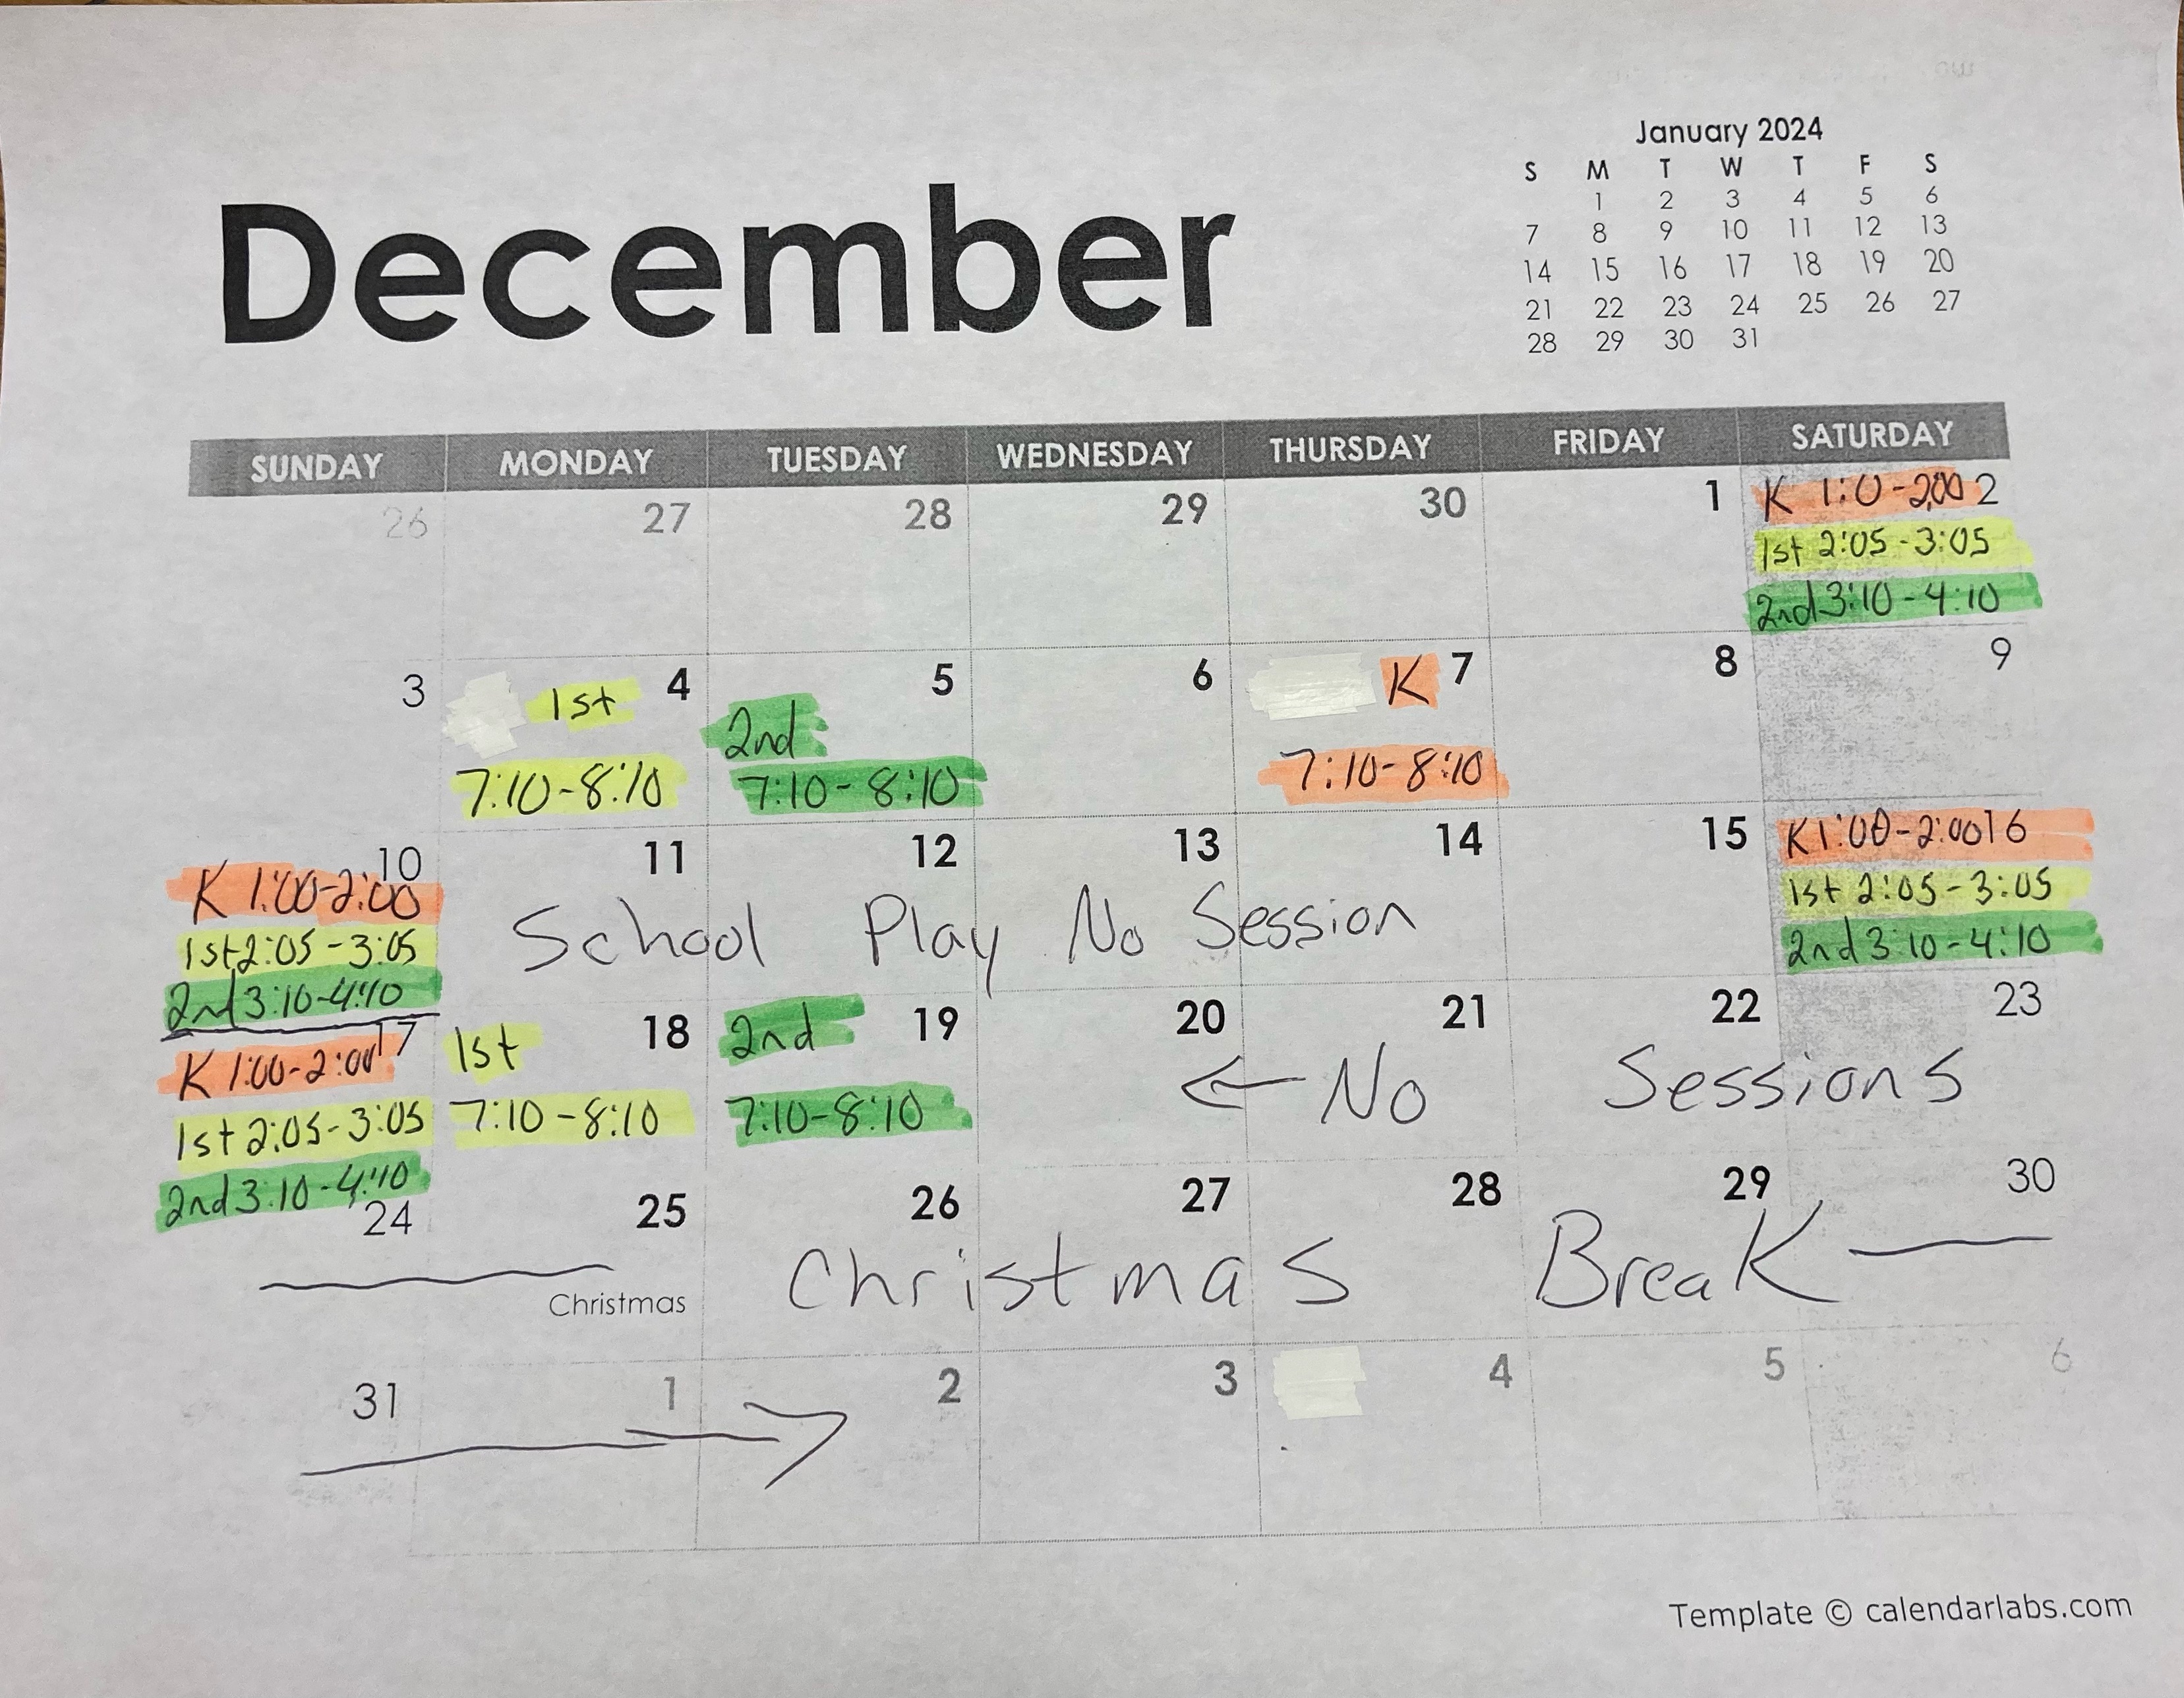 January 2024
S M T W T F S
1 2 3 4 5 6
7 8 9 10 11 12 13
14 15 16 17 18 19 20
21 22 23 24 25 26 27
28 29 30 31
December
SUNDAY MONDAY TUESDAY WEDNESDAY THURSDAY FRIDAY SATURDAY
26 27 28 29 30 1 2
K 1:0-2:00
1st 2:05-3:05
2nd 3:10-4:10
3 4 5 6 7 8 9
1st
7:10-8:10
2nd
7:10-8:10
K
7:10-8:10
10 11 12 13 14 15 16
K 1:00-2:00
1st 2:05-3:05
2nd 3:10-4:10
School Play No Session
K 1:00-2:00
1st 2:05-3:05
2nd 3:10-4:10
17 18 19 20 21 22 23
K 1:00-2:00
1st 2:05-3:05
2nd 3:10-4:10
1st
7:10-8:10
2nd
7:10-8:10
← No Sessions
24 25 26 27 28 29 30
Christmas Break
Christmas
31 1 2 3 4 5 6
Template © calendarlabs.com